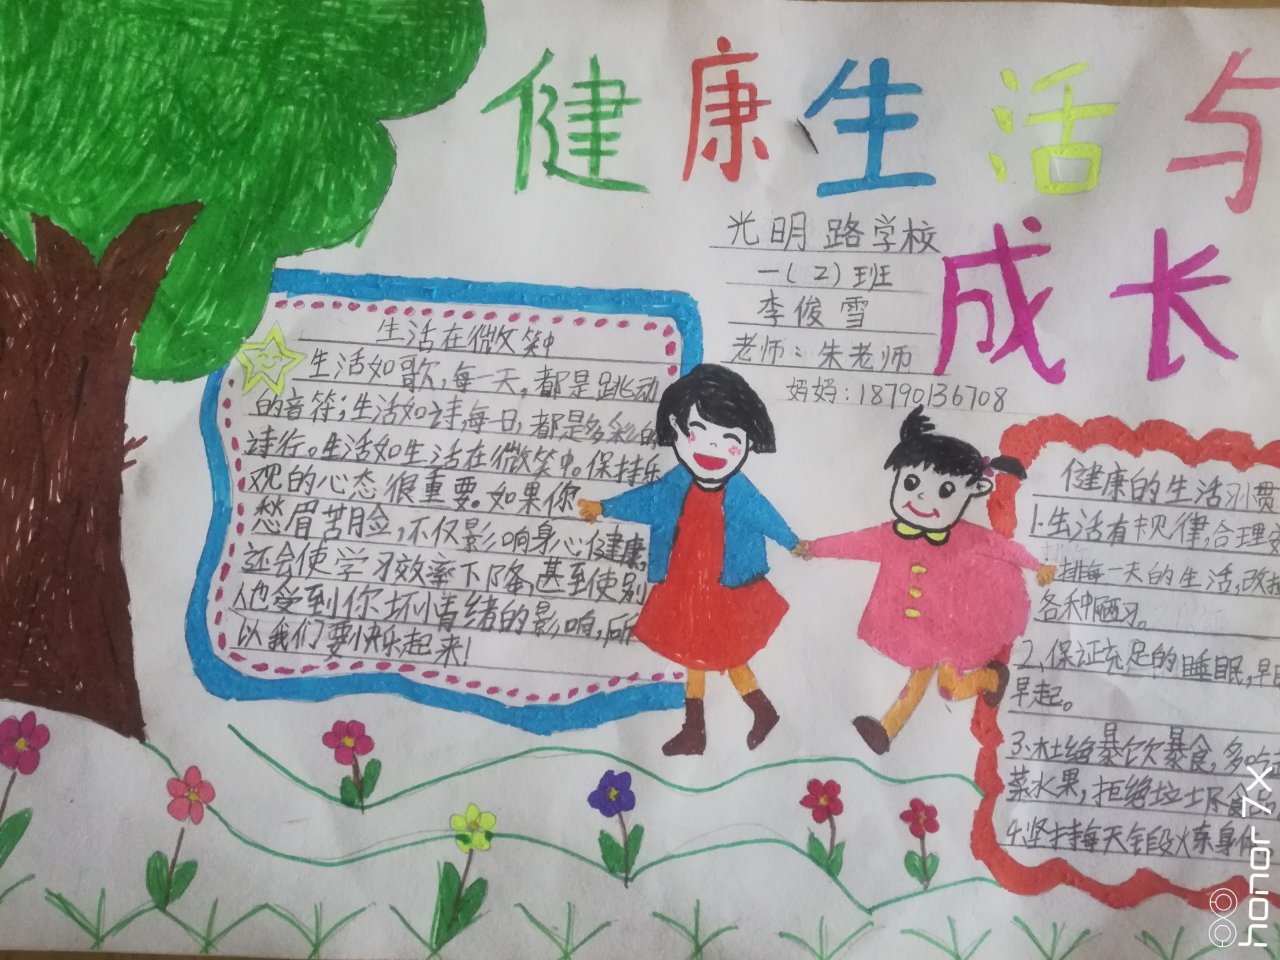 健康生活与
成长
光明路学校
一(2)班
李俊雪
老师:朱老师
妈妈:18790136708
生活在微笑中
生活如歌,每一天,都是跳动
的音符;生活如诗,每一日,都是多彩的
诗行。生活如生活在微笑中。保持乐
观的心态很重要。如果你
愁眉苦脸,不仅影响身心健康,
还会使学习效率下降,甚至使别
人也受到你坏情绪的影响,所
以我们要快乐起来!
健康的生活习惯
1.生活有规律,合理安
排每一天的生活,改掉
各种陋习。
2、保证充足的睡眠,早睡
早起。
3、杜绝暴饮暴食,多吃
菜水果,拒绝垃圾食品
4.坚持每天锻炼身体
honor 7X